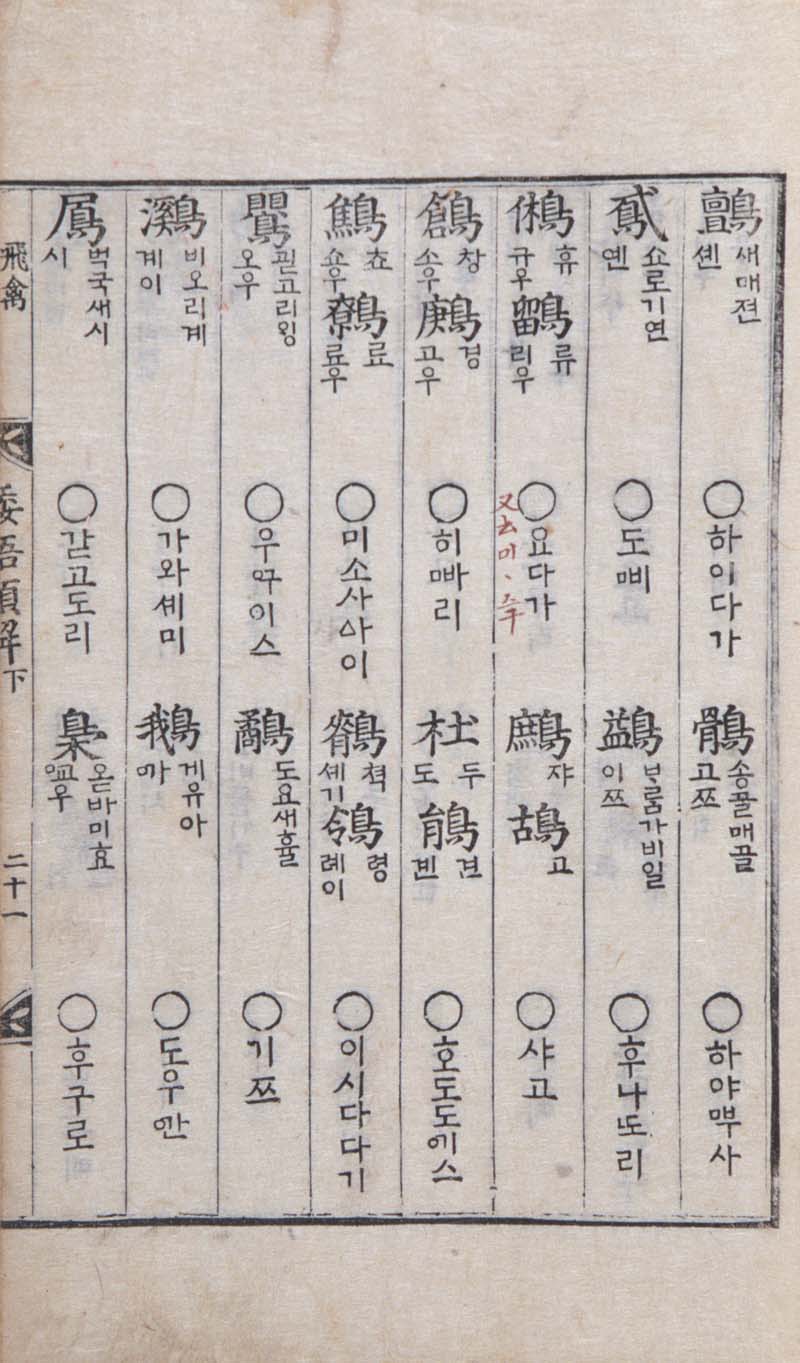 鸇 새매젼 셴 ○하이다가 鶻 송골매골 고쯔 ○하야ᄜᅮ사
鳶 쇼로기연 옌 ○도ᄜᅵ 鷁 ᄇᆞ룸가비일 이쯔 ○후나ᄯᅩ리
鵂 휴 규우 鶹 류 리우 ○요다가 又云미〻 鷓 쟈 鴣 고 ○샤고
鶬 창 소우 鶊 경 고우 ○히ᄜᅡ리 杜 두 도 鵑 견 켄 ○호도도예스
鷦 쵸 쇼우 鷯 료 료우 ○미소사ᅀᅡ이 鶺 쳑 셰기 鴒 령 례이 ○이시다다기
鸎 오우 ○우구이스 鷸 도요새휼 ○기쯔
鸂 비오리계 계이 ○가와셰미 鵝 게유아 까 ○도우ᅌᅡᆫ
鳲 벅국새시 시 ○갇고도리 梟 옫바미효 ᅌᅭ우 ○후구로
飛禽 倭語類解下 二十一